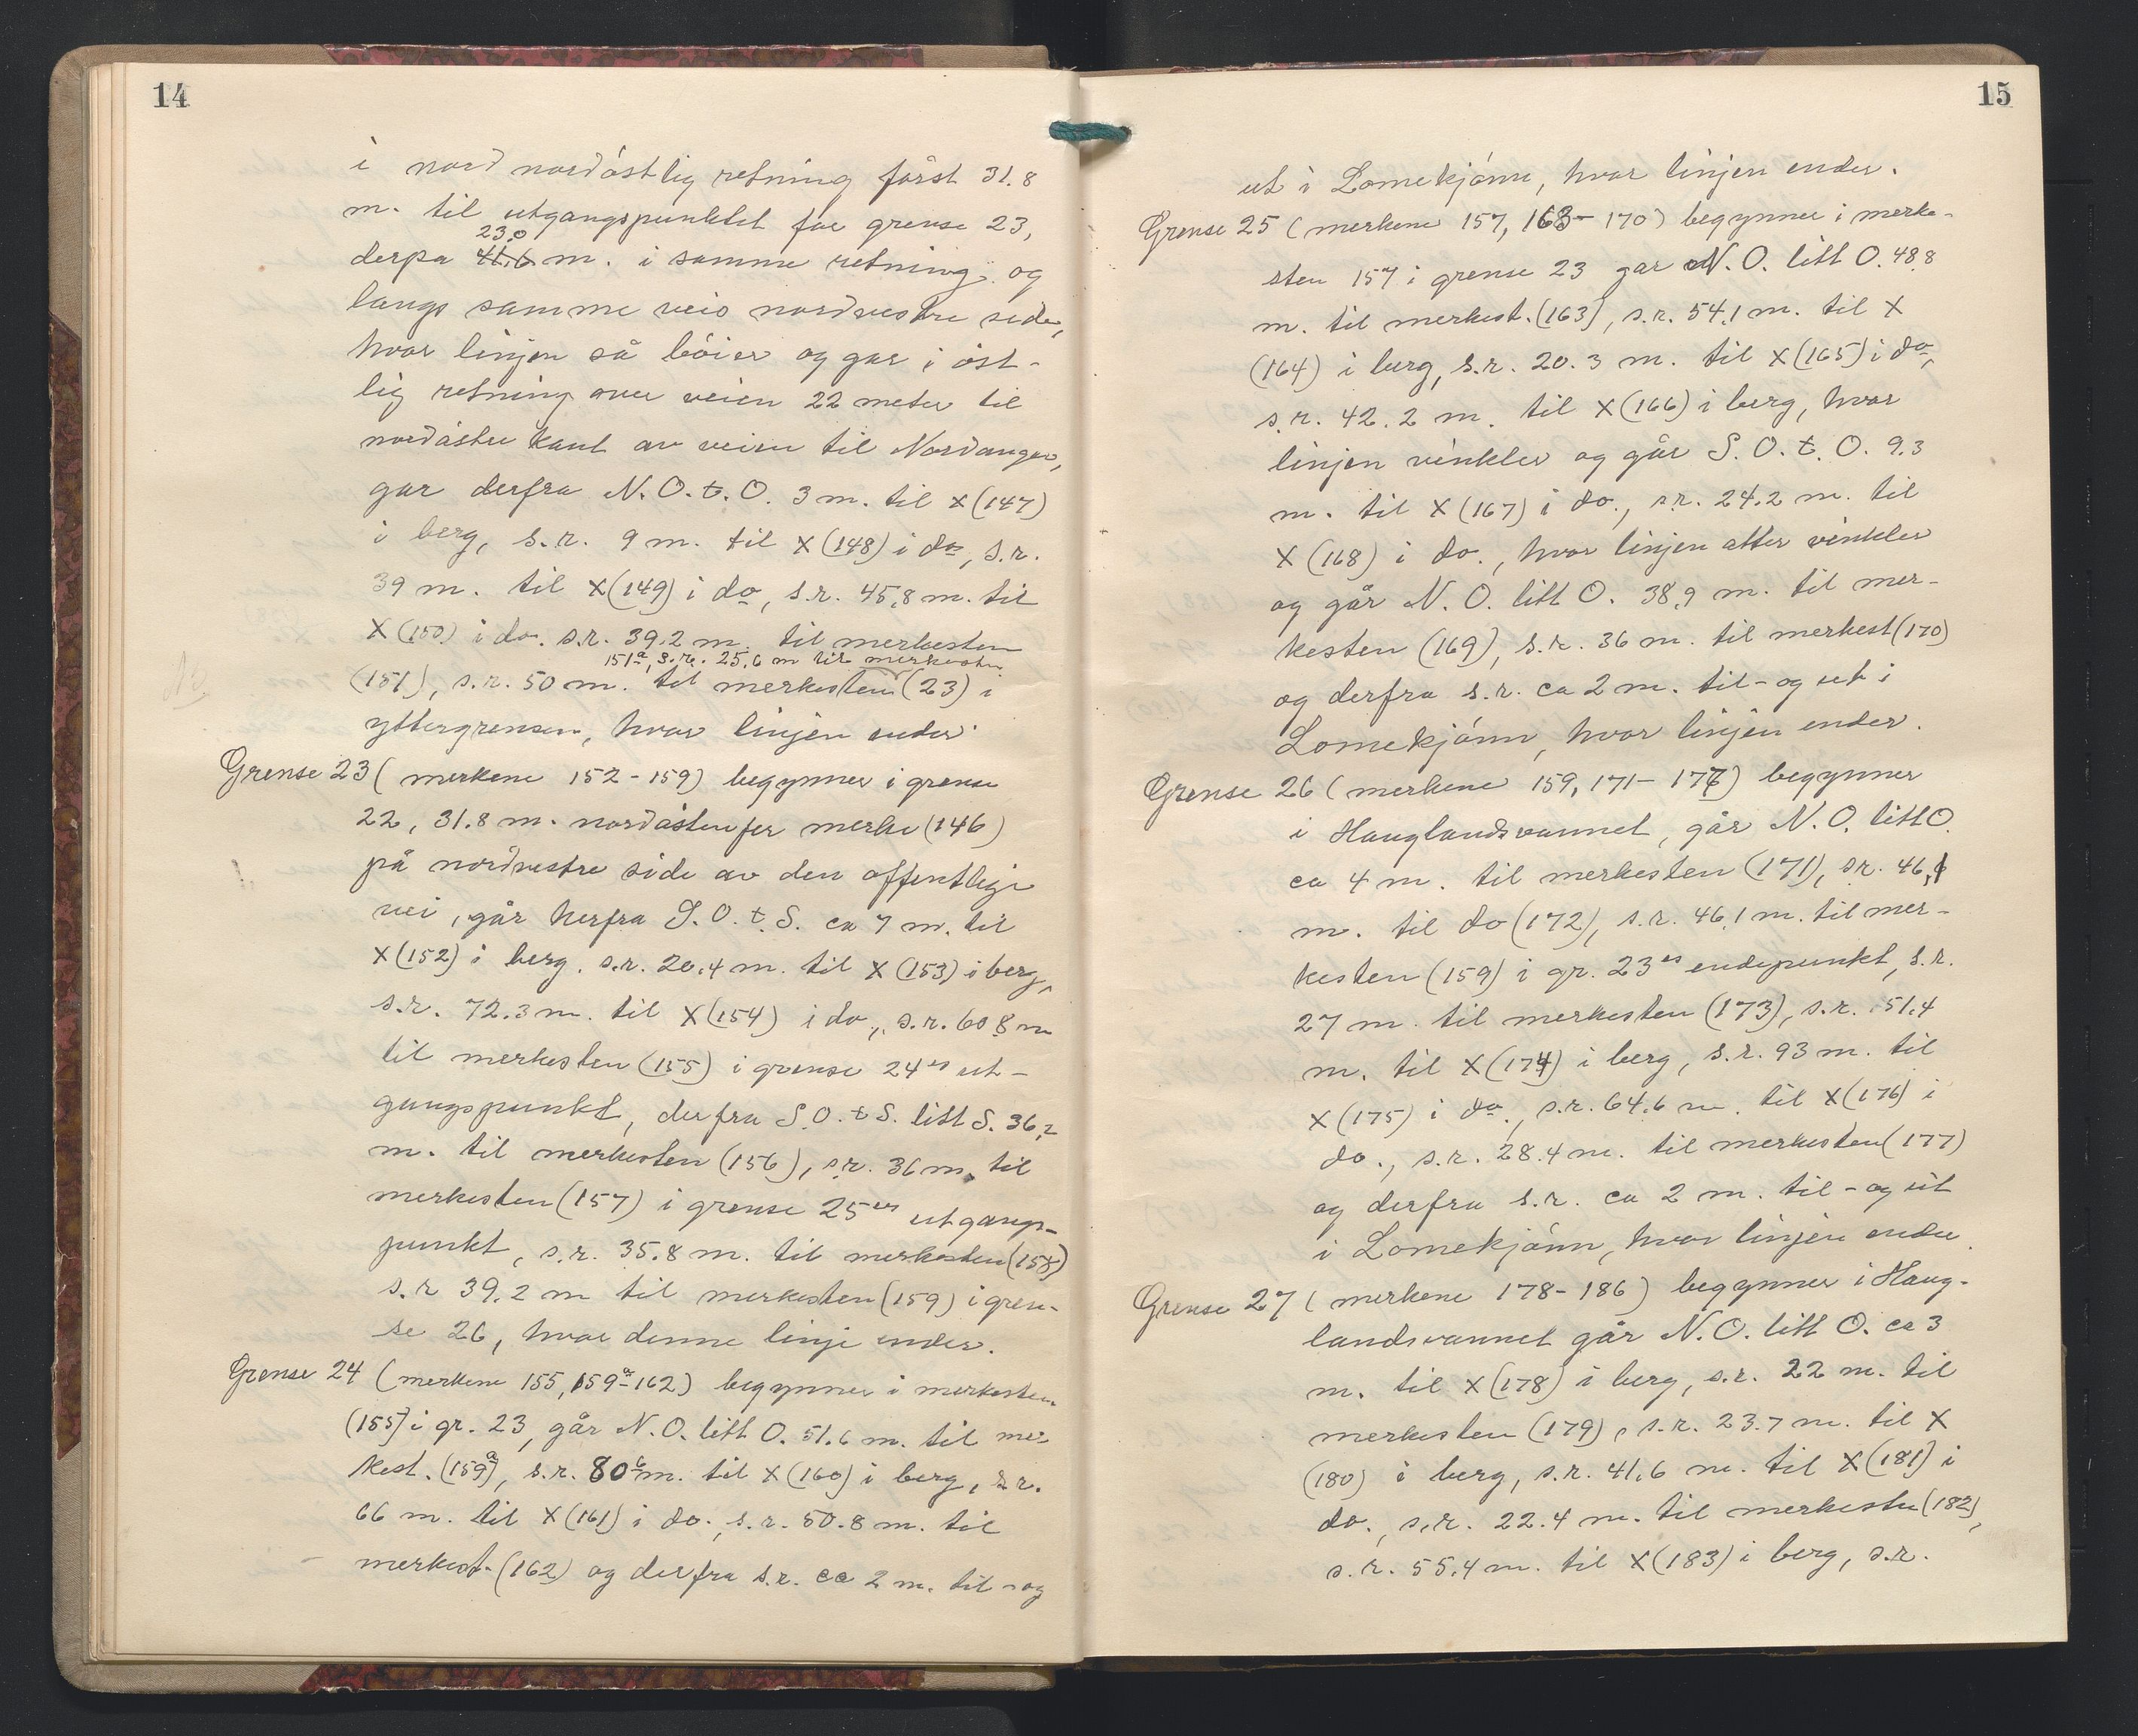 14
i nord nordöstlig retning först 31.8
m. til utgangspunktet for grense 23,
23,0
derpa 41,6 m. i samme retning og
langs samme veis nordvestre side,
hvor linjen så böier og gar i öst-
lig retning over veien 22 meter til
nordöstre kant av veien til Nordanger,
gar derfra N.O.t.O. 3 m. til x (147)
i berg, s.r. 9 m. til x (148) i do, s.r.
39 m. til x (149) i do, s.r. 45,8 m. til
x (150) i do. s.r. 39,2 m. til merkesten
151a, s.r. 25.6 m til merkesten
(151), s.r. 50 m. til merkesten (23) i
yttergrensen, hvor linjen ender.
Grense 23 (merkene 152-159) begynner i grense
22, 31.8 m. nordöstenfor merke (146)
på nordvestre side av den offentlige
vei, går herfra S.O.t.S. ca 7 m. til
x (152) i berg. s.r. 20.4 m. til x (153) i berg,
s.r. 72.3 m. til x (154) i do., s.r. 60 8 m
til merkesten (155) i grense 24es ut-
gangspunkt, derfra S.O.t S. litt S. 36,2
m. til merkesten (156), s.r. 36 m. til
merkesten (157) i grense 25es utgangs-
punkt, s.r. 35.8 m. til merkesten (158)
s.r 39.2 m til merkesten (159) i gren-
se 26, hvor denne linje ender.
Grense 24 (merkene 155, 159a-162) begynner i merkesten
(155) i gr. 23, går N.O. litt O. 51.6 m. til mer
kest. (159a), s.r. 80 6 m. til x (160) i berg, s.r.
66 m. til x (161) i do., s.r. 50.8 m. til
merkest. (162) og derfra s.r. ca 2 m. til - og
15
ut i Lomekjönn, hvor linjen ender.
Grense 25 (merkene 157, 163-170) begynner i merke-
sten 157 i grense 23 gar N.O. litt O. 48,8
m. til merkest. (163), s.r. 54,1 m. til x
(164) i berg, s.r. 20.3 m. til x (165) i do,
s.r. 42.2 m. til x (166) i berg, hvor
linjen vinkler og går S.O.t.O. 9.3
m. til x (167) i do., s.r. 24,2 m. til
x (168) i do., hvor linjen atter vinkler
og går N.O. litt O. 38,9 m. til mer-
kesten (169), s.r. 36 m. til merkest (170)
og derfra s.r. ca 2 m. til - og ut i
Lomekjönn, hvor linjen ender.
Grense 26 (merkene 159, 171-177) begynner
i Hauglandsvannet, går N.O. litt O.
ca 4 m. til merkesten (171), s.r. 46,1
m. til do (172), s.r. 46,1 m. til mer-
kesten (159) i gr. 23es endepunkt, s.r.
27 m. til merkesten (173), s.r. 51.4
m. til x (174) i berg, s.r. 93 m. til
x (175) i do., s.r. 64.6 m. til x (176) i
do., s.r. 28.4 m. til merkesten (177)
og derfra s.r. ca 2 m. til - og ut
i Lomekjönn, hvor linjen ender.
Grense 27 (merkene 178-186) begynner i Haug-
landsvannet går N.O. litt O. ca 3
m. til x (178) i berg, s.r. 22 m. til
merkesten (179), s.r. 23.7 m. til x
(180) i berg, s.r. 41.6 m. til x (181) i
do., s.r. 22.4 m. til merkesten (182),
s.r. 55.4 m. til x (183) i berg, s.r.